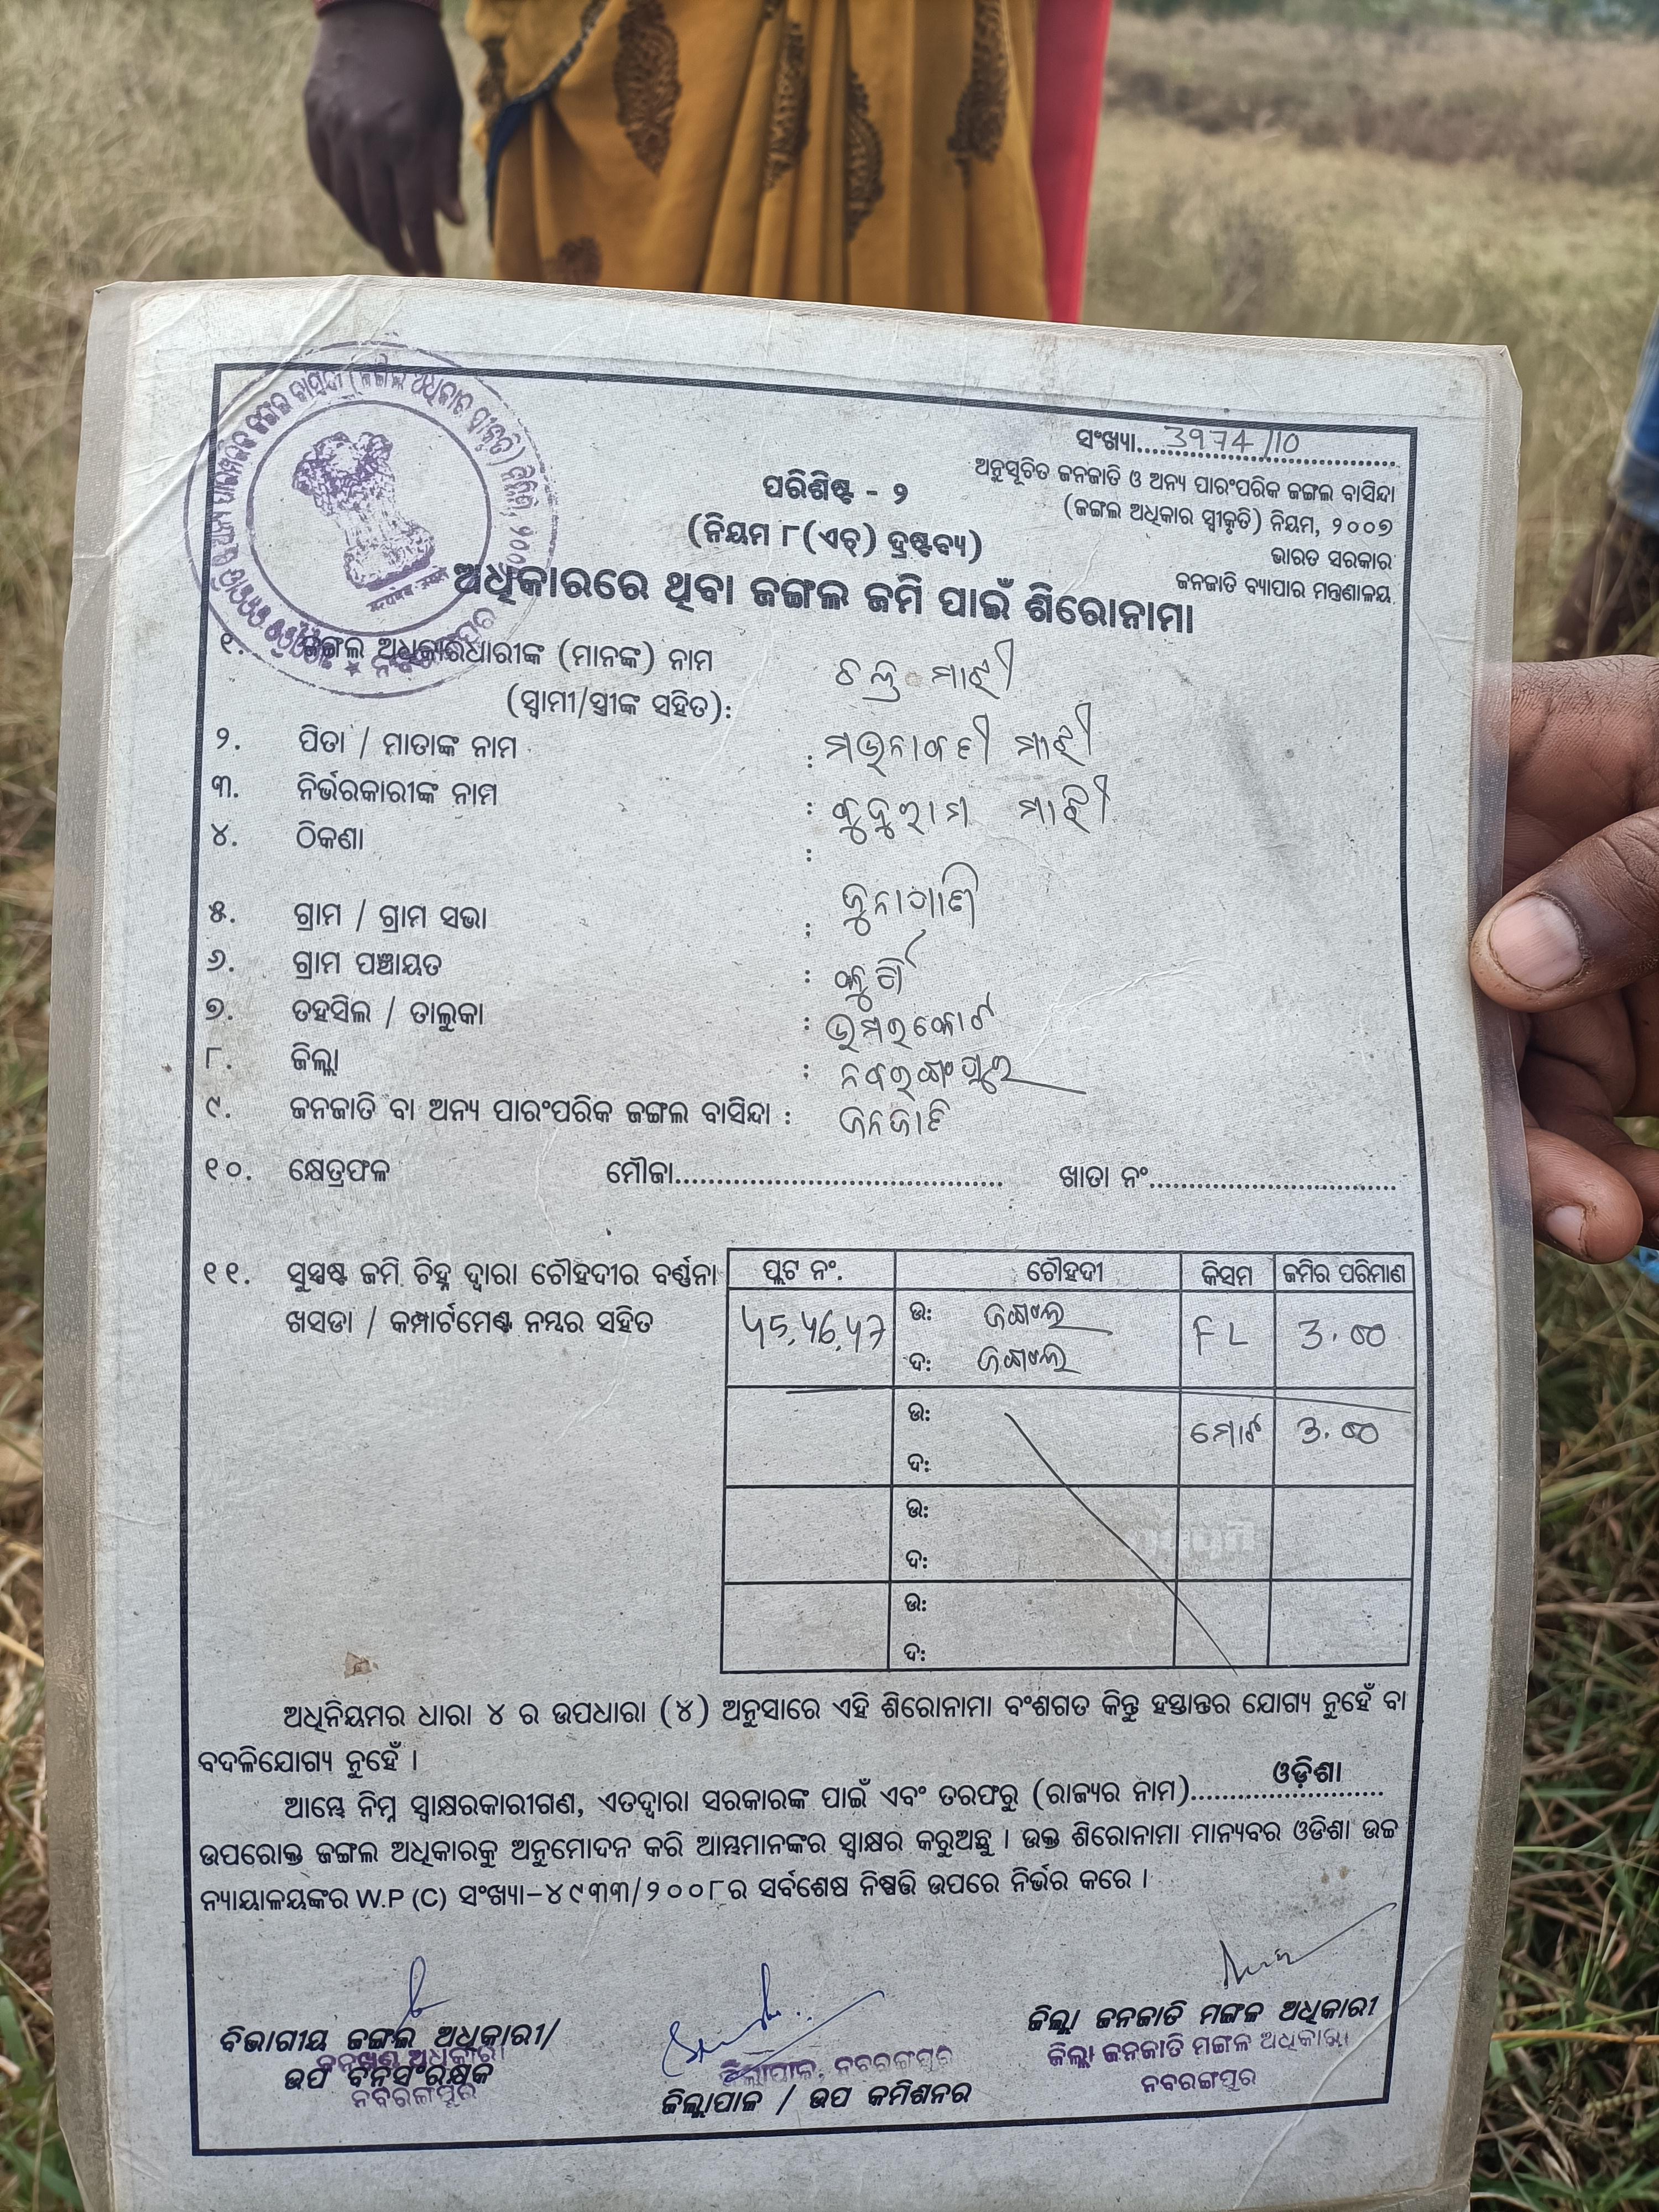 ସଂଖ୍ୟା....3974/10....
ଅନୁସୂଚିତ ଜନଜାତି ଓ ଅନ୍ୟ ପାରଂପରିକ ଜଙ୍ଗଲ ବାସିନ୍ଦା
(ଜଙ୍ଗଲ ଅଧିକାର ସ୍ୱୀକୃତି) ନିୟମ, ୨୦୦୭
ଭାରତ ସରକାର
ଜନଜାତି ବ୍ୟାପାର ମନ୍ତ୍ରଣାଳୟ
ପରିଶିଷ୍ଟ - ୨
(ନିୟମ ୮(ଏଚ୍) ଦ୍ରଷ୍ଟବ୍ୟ)
ଅଧିକାରରେ ଥିବା ଜଙ୍ଗଲ ଜମି ପାଇଁ ଶିରୋନାମା
୧. ଜଙ୍ଗଲ ଅଧିକାରଧାରୀଙ୍କ (ମାନଙ୍କ) ନାମ
(ସ୍ୱାମୀ/ସ୍ତ୍ରୀଙ୍କ ସହିତ): ମାଝୀ
୨. ପିତା / ମାତାଙ୍କ ନାମ : ମାଝୀ
୩. ନିର୍ଭରକାରୀଙ୍କ ନାମ : ମାଝୀ
୪. ଠିକଣା :
୫. ଗ୍ରାମ / ଗ୍ରାମ ସଭା : ଜୁନାପାଣି
୬. ଗ୍ରାମ ପଞ୍ଚାୟତ :
୭. ତହସିଲ / ତାଲୁକା : ଉମରକୋଟ
୮. ଜିଲ୍ଲା : ନବରଙ୍ଗପୁର
୯. ଜନଜାତି ବା ଅନ୍ୟ ପାରଂପରିକ ଜଙ୍ଗଲ ବାସିନ୍ଦା : ଜନଜାତି
୧୦. କ୍ଷେତ୍ରଫଳ ମୌଜା........................................ ଖାତା ନଂ..............................
୧୧. ସୁସ୍ପଷ୍ଟ ଜମି ଚିହ୍ନ ଦ୍ୱାରା ଚୌହଦୀର ବର୍ଣ୍ଣନା
ଖସଡା / କମ୍ପାର୍ଟମେଣ୍ଟ ନମ୍ବର ସହିତ
ପ୍ଲଟ ନଂ. ଚୌହଦୀ କିସମ ଜମିର ପରିମାଣ
45,46,47 ଉ: ଜଙ୍ଗଲ FL 3.00
ଦ: ଜଙ୍ଗଲ
ଉ: ମୋଟ 3.00
ଦ:
ଉ:
ଦ:
ଉ:
ଦ:
ଅଧିନିୟମର ଧାରା ୪ ର ଉପଧାରା (୪) ଅନୁସାରେ ଏହି ଶିରୋନାମା ବଂଶଗତ କିନ୍ତୁ ହସ୍ତାନ୍ତର ଯୋଗ୍ୟ ନୁହେଁ ବା
ବଦଳିଯୋଗ୍ୟ ନୁହେଁ ।
ଆମ୍ଭେ ନିମ୍ନ ସ୍ୱାକ୍ଷରକାରୀଗଣ, ଏତଦ୍ୱାରା ସରକାରଙ୍କ ପାଇଁ ଏବଂ ତରଫରୁ (ରାଜ୍ୟର ନାମ)........ଓଡ଼ିଶା........
ଉପରୋକ୍ତ ଜଙ୍ଗଲ ଅଧିକାରକୁ ଅନୁମୋଦନ କରି ଆମ୍ଭମାନଙ୍କର ସ୍ୱାକ୍ଷର କରୁଅଛୁ । ଉକ୍ତ ଶିରୋନାମା ମାନ୍ୟବର ଓଡିଶା ଉଚ୍ଚ
ନ୍ୟାୟାଳୟଙ୍କର W.P (C) ସଂଖ୍ୟା-୪୯୩୩/୨୦୦୮ର ସର୍ବଶେଷ ନିଷ୍ପତ୍ତି ଉପରେ ନିର୍ଭର କରେ ।
ବିଭାଗୀୟ ଜଙ୍ଗଲ ଅଧିକାରୀ/
ଉପ ବନସଂରକ୍ଷକ
ନବରଙ୍ଗପୁର
ଜିଲ୍ଲାପାଳ, ନବରଙ୍ଗପୁର
ଜିଲ୍ଲାପାଳ / ଉପ କମିଶନର
ଜିଲ୍ଲା ଜନଜାତି ମଙ୍ଗଳ ଅଧିକାରୀ
ଜିଲ୍ଲା ଜନଜାତି ମଙ୍ଗଳ ଅଧିକାରୀ
ନବରଙ୍ଗପୁର